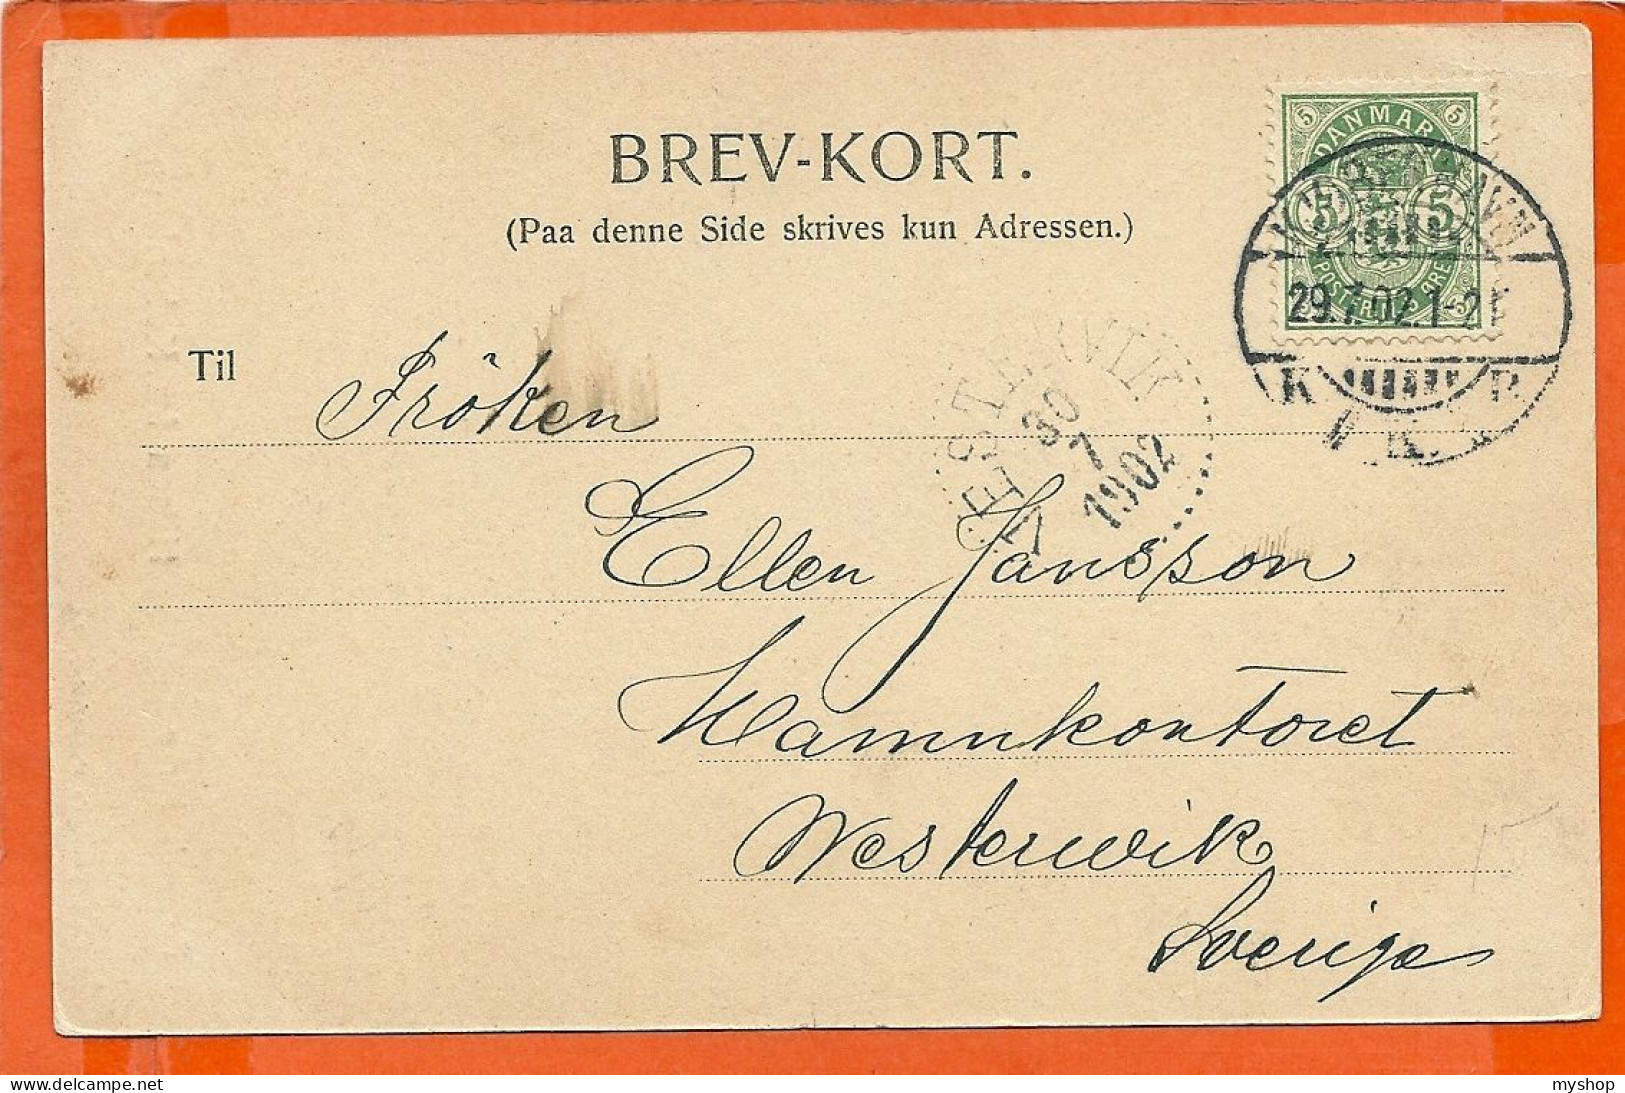 BREV-KORT.
(Paa denne Side skrives kun Adressen.)
DANMARK
5 5
5 5
POSTFRIM 5 ØRE
29.7.02.1-2E
K
K.
VESTERVIK
30
7
1902
Til Fröken
Ellen Jansson
Hamnkontoret
Westerwik
Sverige
15
delcampe.net
myshop